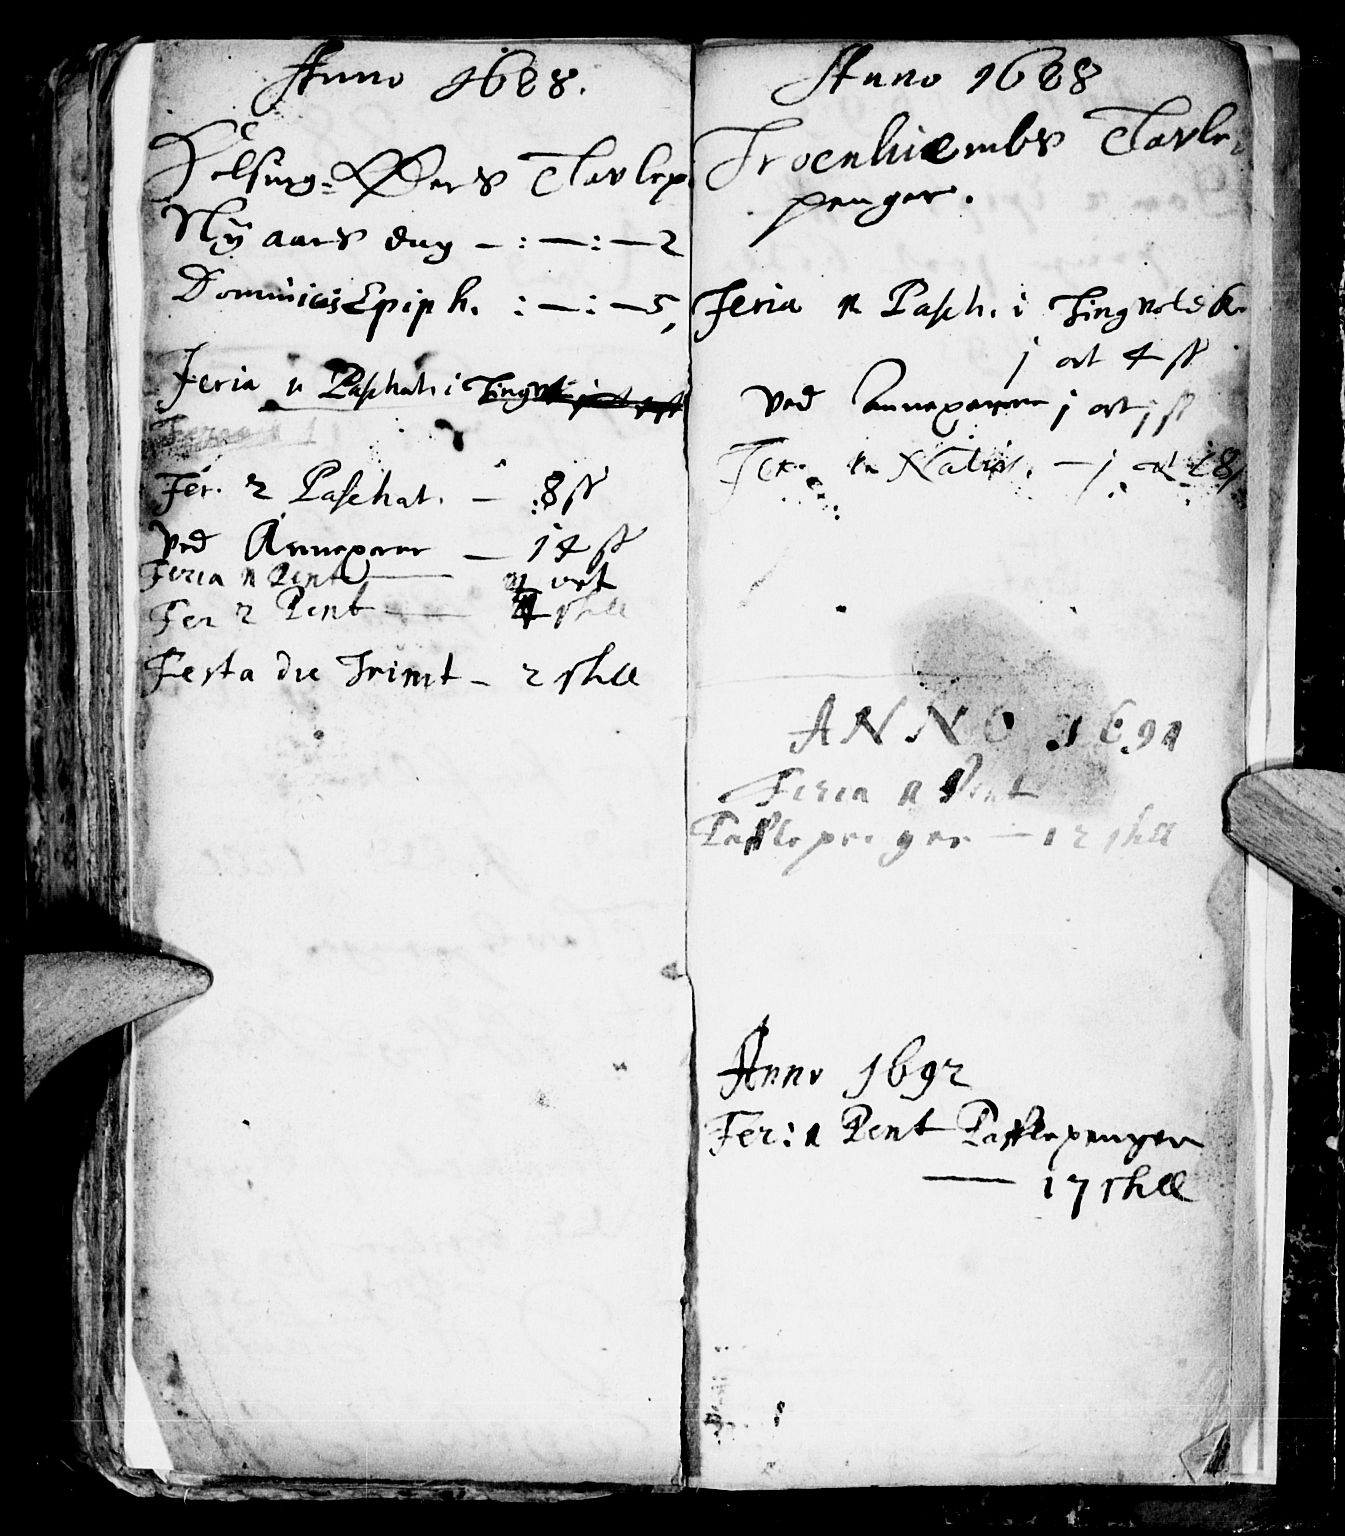 Anno 1688.
Helsing-Øers Tavlep
Ny aars dag — : — : — 2
Dominicis Epiph. : — : — 5,
Feria 1 Paschat. i Tingv
Feria 1
Fer. 2 Paschat. — 8 ſſ
ved Annexerne — 14 ſſ
Feria 1 Pent — ort
Fer 2 Pent — 4 shill
Festa die Trinit — 2 shill
Anno 1688
Troenhiembs Tavle-
penger.
Feria 1 Pasch. i Tingvold K.
j ort 4 ſſ
ved Annexerne j ort j ſſ
Fer. 1 Nativ. — j ort 18
ANNO 1691
Feria 1 Pent
Taffle penger — 12 shill
Anno 1692
Fer: 1 Pent Tafflepenger
— 17 shill